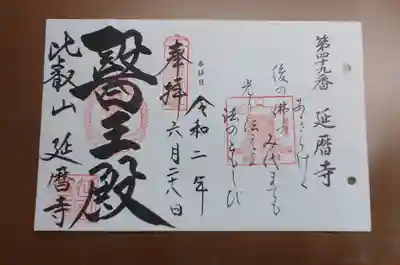 第四十九番 延暦寺
あきらけく
後の佛の
み代までも
光り伝へよ
法のともしび
奉拝
令和二年
六月二十八日
醫王殿
比叡山 延暦寺